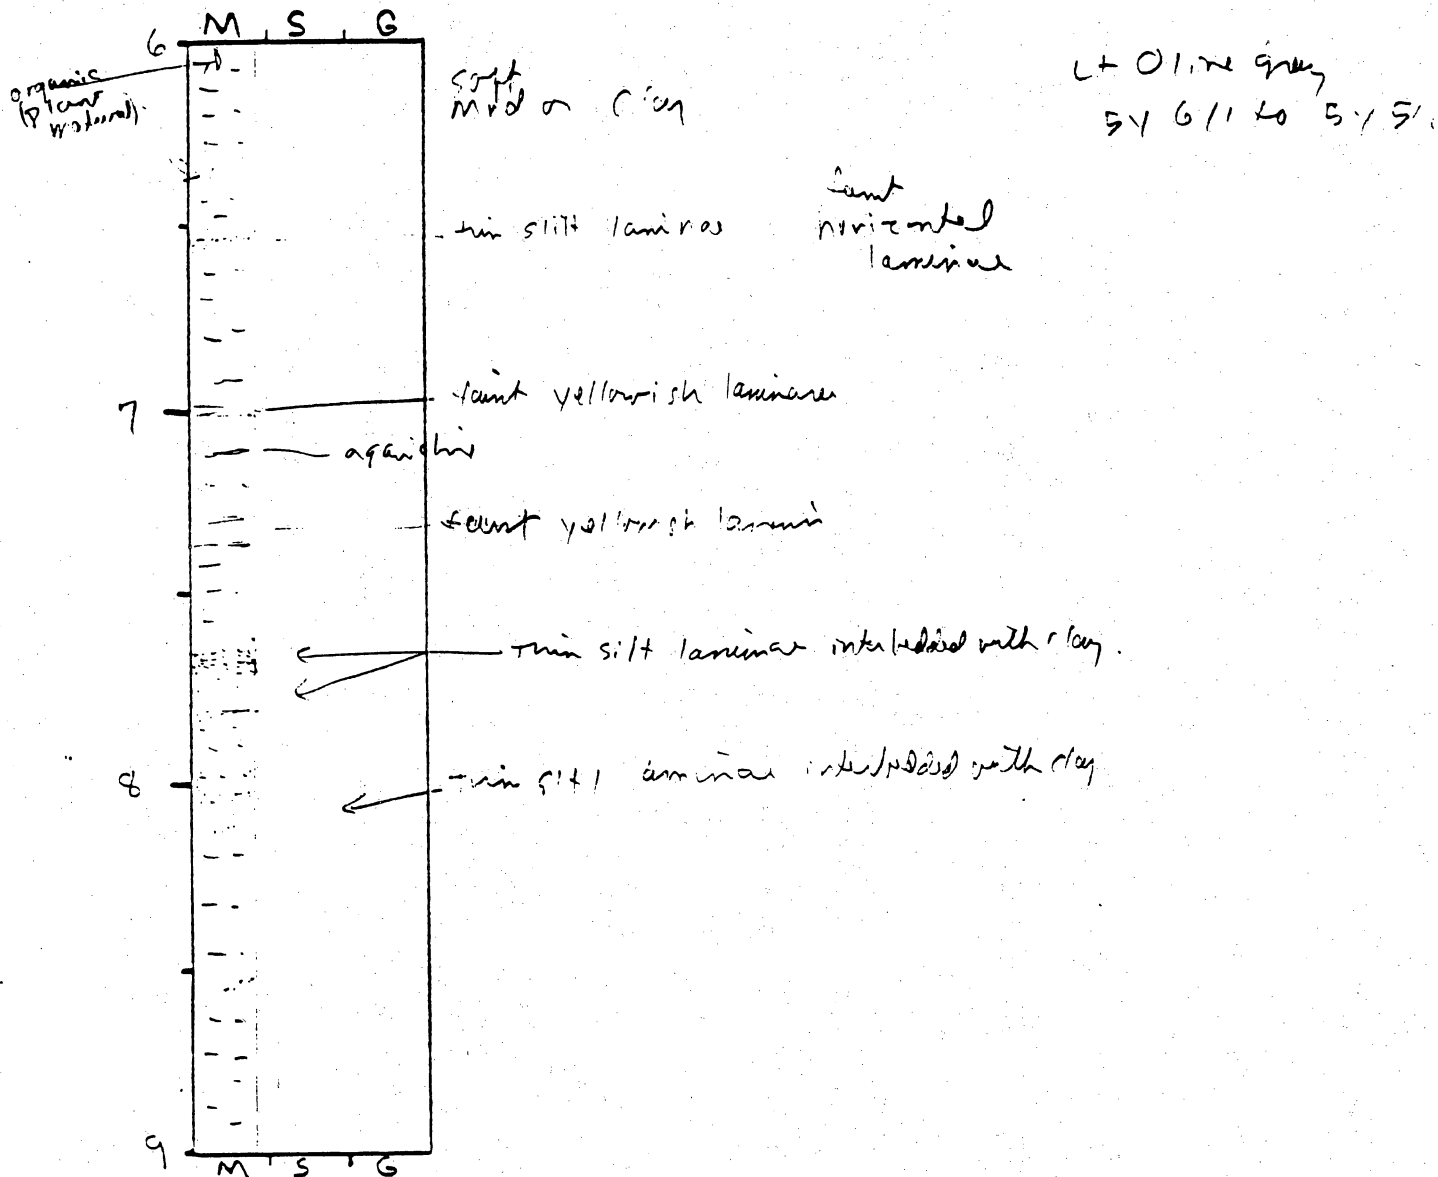 M S G
6
organic
(Plant
material)
soft
mud or clay
Lt Olive gray
5Y 6/1 to 5Y 5/
thin slilt laminae
faint
horizontal
laminae
7
faint yellowish laminae
faint yellowish
Thin silt laminae interbedded with clay.
8
Thin silt laminae interbedded with clay
9
M S G